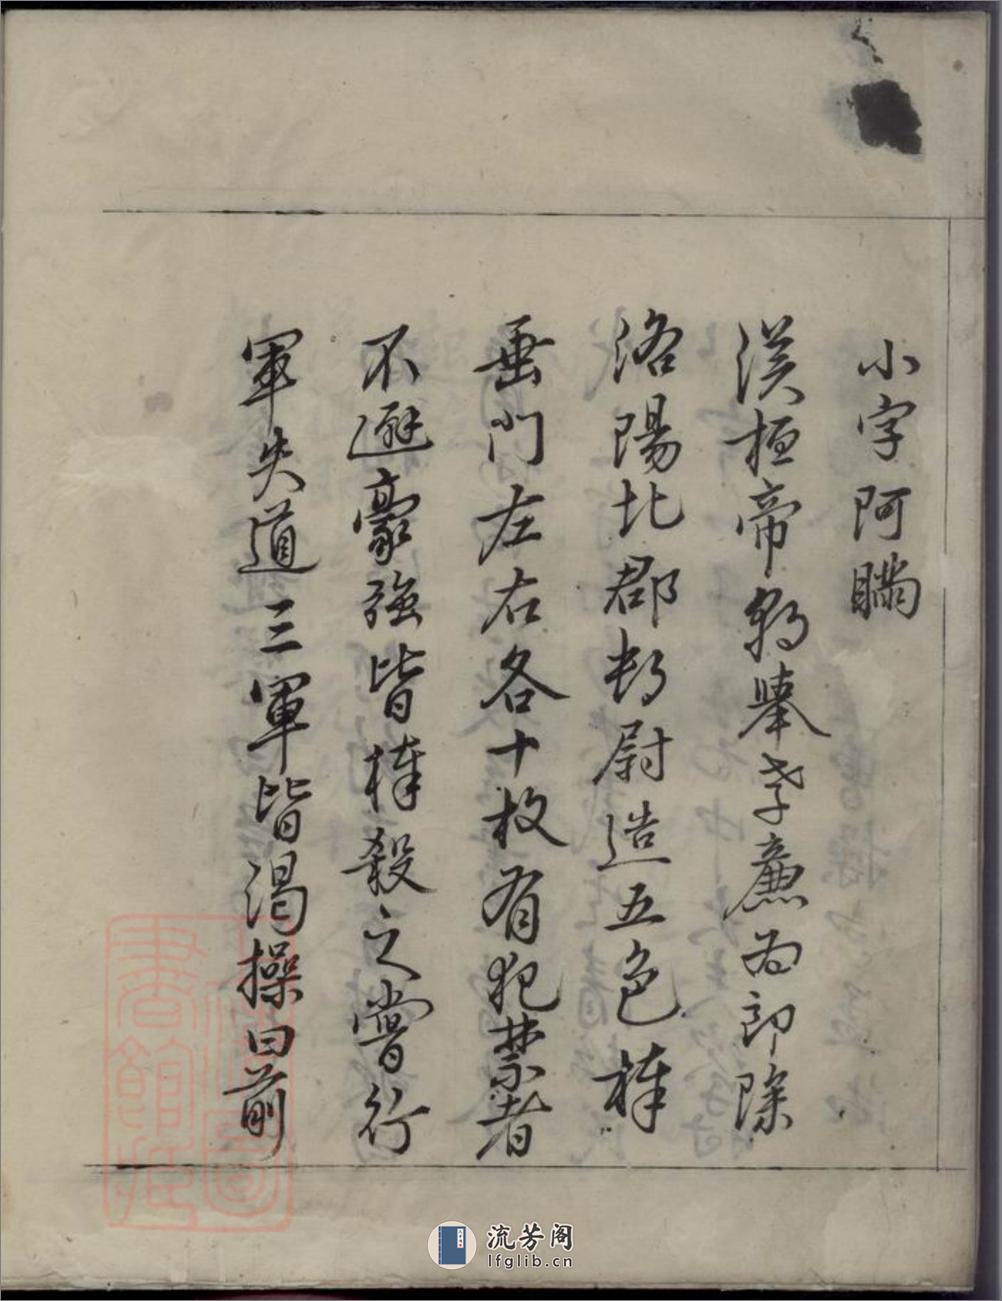 小字阿瞞
漢桓帝朝舉孝廉為郎除
洛陽北郡都尉造五色棒
垂門左右各十枚有犯禁者
不避豪強皆棒殺之嘗行
軍失道三軍皆渴操曰前
流芳阁
lfglib.cn